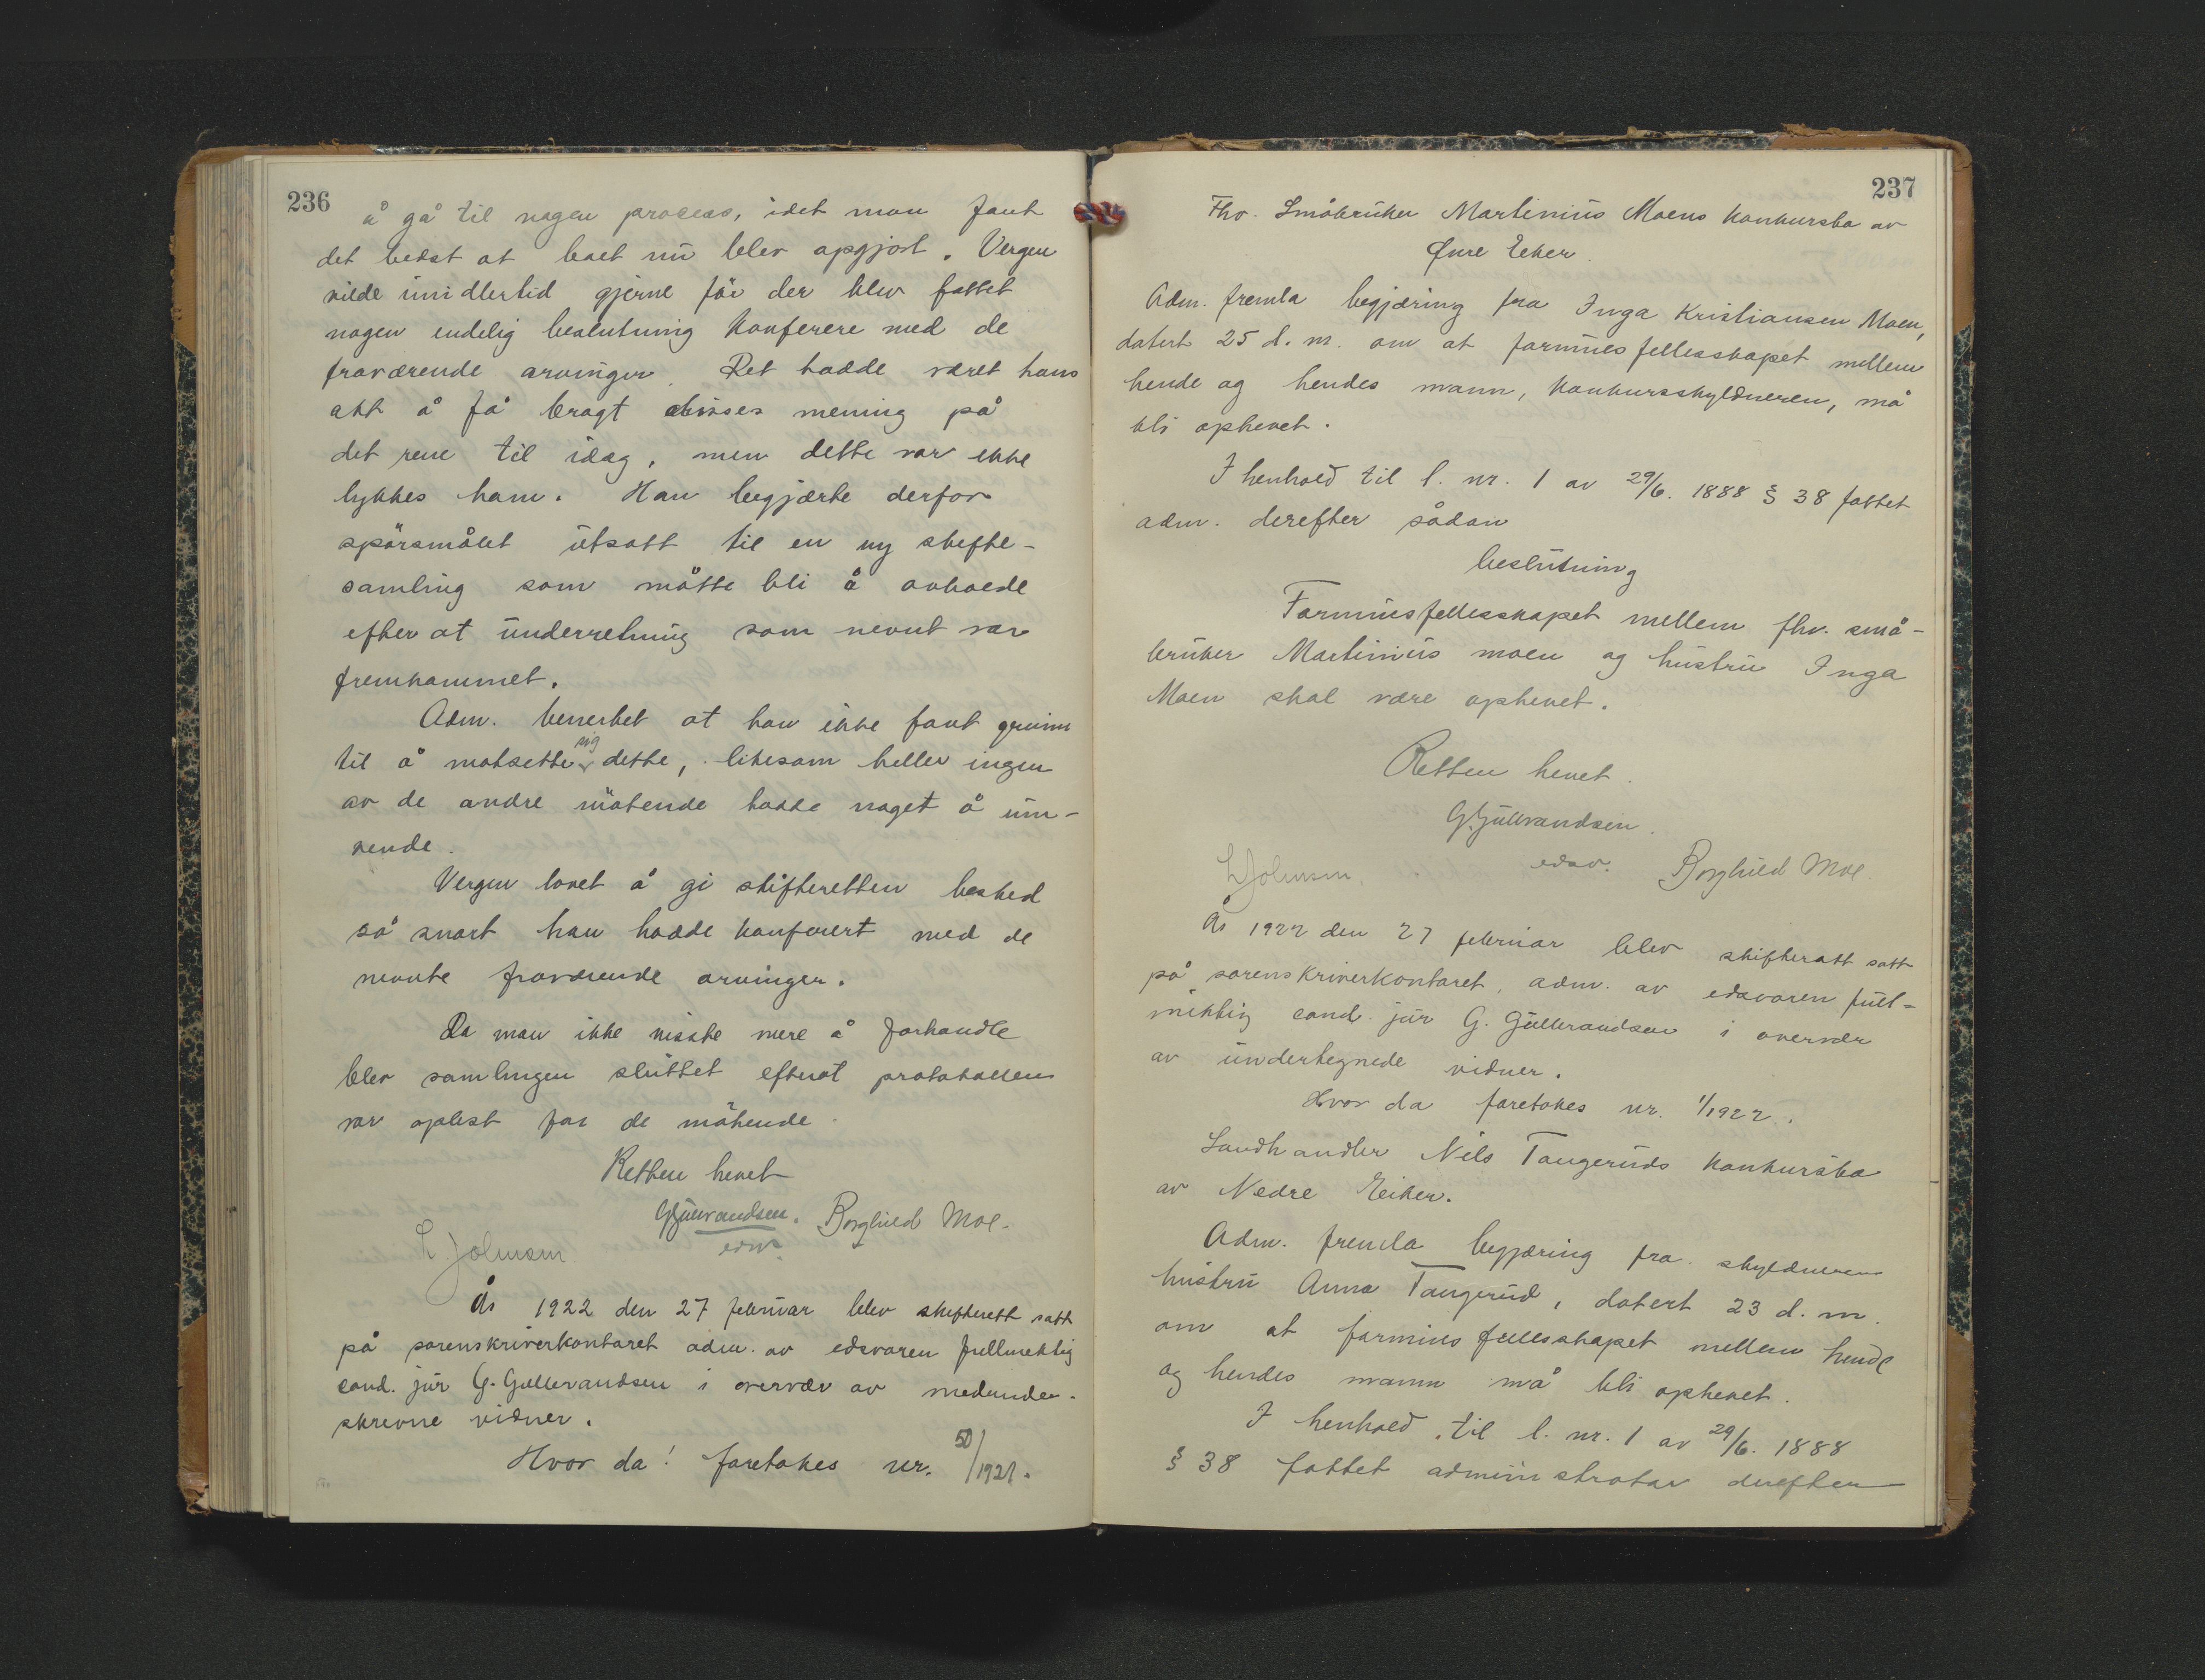 236
å gå til nogen process, idet man fant
det bedst at boet nu blev opgjort. Vergen
vilde imidlertid gjerne før der blev fattet
nogen endelig beslutning konferere med de
fraværende arvinger. Det hadde været hans
akt å få bragt disses mening på
det rene til idag, men dette var ikke
lykkes ham. Han begjærte derfor
spørsmålet utsatt til en ny skifte-
samling som måtte bli å avholde
efter at underretning som nevnt var
fremkommet.
Adm. bemerket at han ikke fant grunn
til å motsette sig dette, likesom heller ingen
av de andre møtende hadde noget å inn-
vende.
Vergen lovet å gi skifteretten besked
så snart han hadde konferert med de
nevnte fraværende arvinger.
Da man ikke visste mere å forhandle
blev samlingen sluttet efterat protokollen
var oplest for de møtende.
Retten hevet
G Gullvrandsen. Borghild Moe.
edsv.
L Johnsen
År 1922 den 27 februar blev skifterett satt
på sorenskriverkontoret adm. av edsvoren fullmektig
cand. jur G. Gullvrandsen i overvær av medunder-
skrevne vidner.
Hvor da! foretokes nr. 50/1921.
237
Fhv. Småbruker Martinius Moens konkursbo av
Øvre Eiker.
Adm. fremla begjæring fra Inga Kristiansen Moen,
datert 25 d. m. om at formuesfellesskapet mellem
hende og hendes mann, konkursskyldneren, må
bli ophevet.
I henhold til l. nr. 1 av 29/6. 1888 § 38 fattet
adm. derefter sådan
beslutning
Formuesfellesskapet mellem fhv. små-
bruker Martinius moen og hustru Inga
Moen skal være ophevet.
Retten hevet.
G. Gullvrandsen.
edsv. Borghild Moe.
L Johnsen.
År 1922 den 27 februar blev skifterett satt
på sorenskriverkontoret, adm. av edsvoren full-
mektig cand. jur G. Gullvrandsen i overvær
av undertegnede vidner.
Hvor da foretokes nr. 1/1922.
Landhandler Nils Tangeruds konkursbo
av Nedre Eiker.
Adm. fremla begjæring fra skyldneren
hustru Anna Tangerud, datert 23 d. m.
om at formuesfellesskapet mellem hende
og hendes mann må bli ophevet.
I henhold til l. nr. 1 av 29/6. 1888
§ 38 fattet administrator derefter